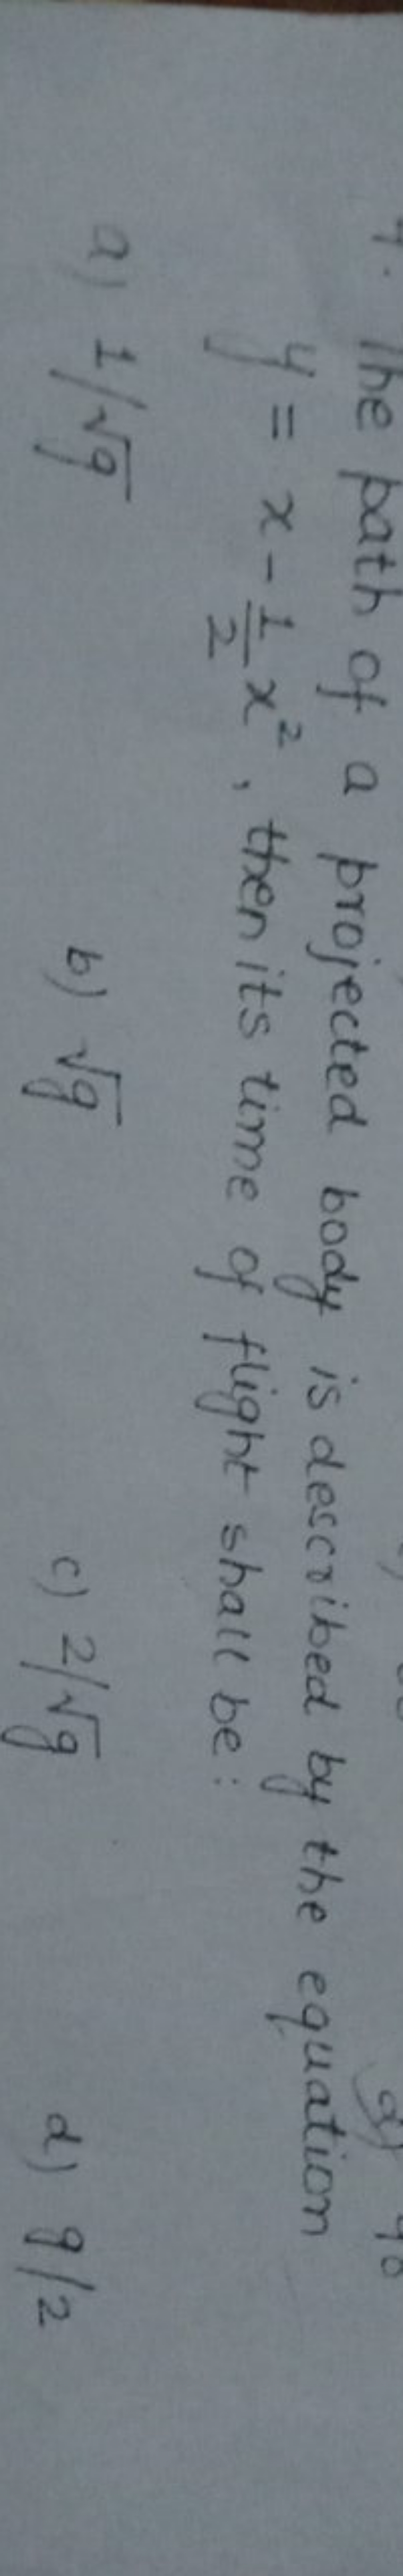 The path of a projected body is described by the equation
y = x - 1/2 x², then its time of flight shall be:
a) 1/√g b) √g c) 2/√g d) g/2